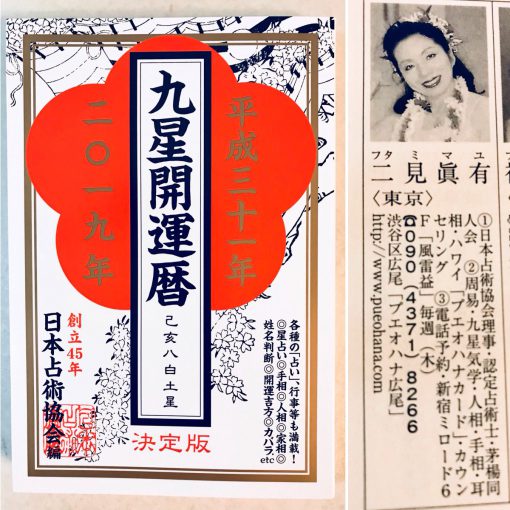 平成三十一年
九星開運暦
己亥八白土星
二〇一九年
各種の「占い」、行事等も満載！
◎星占い◎手相◎人相◎家相◎
姓名判断◎開運吉方◎カバラ
etc
創立45年
日本占術協会編
決定版
フタミマユ
二見眞有
〈東京〉
①日本占術協会理事・認定占術士・茅楊同
人会 ②周易・九星気学・人相・手相・耳
相・ハワイ「プエオハナカード」・カウン
セリング ③電話予約・新宿ミロード6
F「風雷益」毎週（木）
☎090（4371）8266
渋谷区広尾「プエオハナ広尾」
http://www.pueohana.com